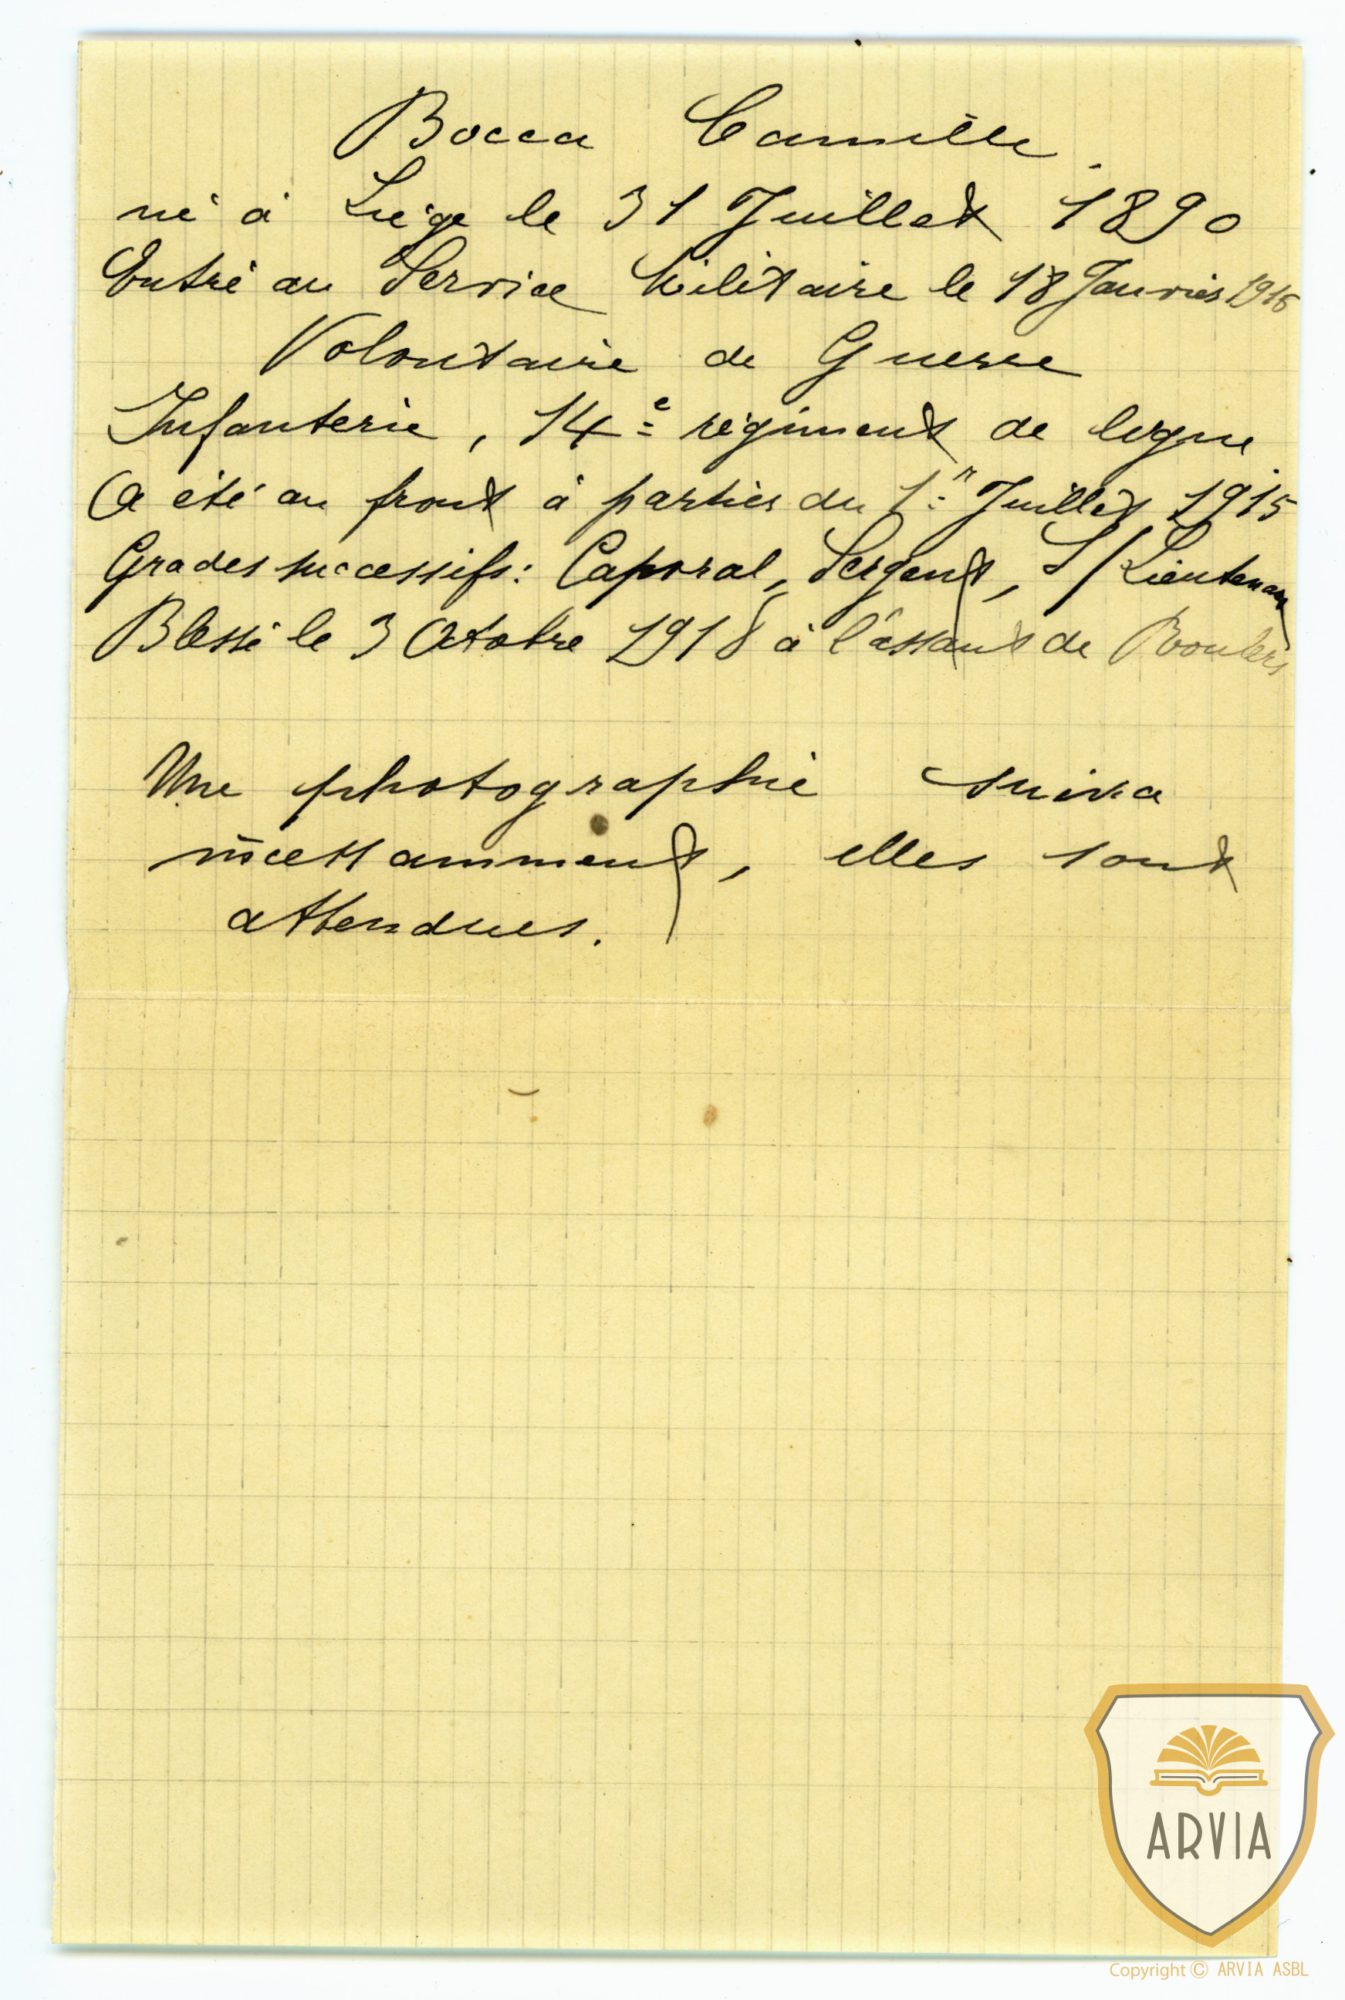 Bocca Camille.
né à Liège le 31 Juillet 1890
Entré au Service Militaire le 18 Janvier 1915
Volontaire de Guerre
Infanterie, 14e régiment de ligne
A été au front à partir du 1r Juillet 1915
Grades successifs: Caporal, Sergent, S/Lieutenant
Blessé le 3 Octobre 1918 à l'assaut de Roulers
Une photographie suivra
incessamment, elles sont
attendues.
ARVIA
Copyright © ARVIA ASBL